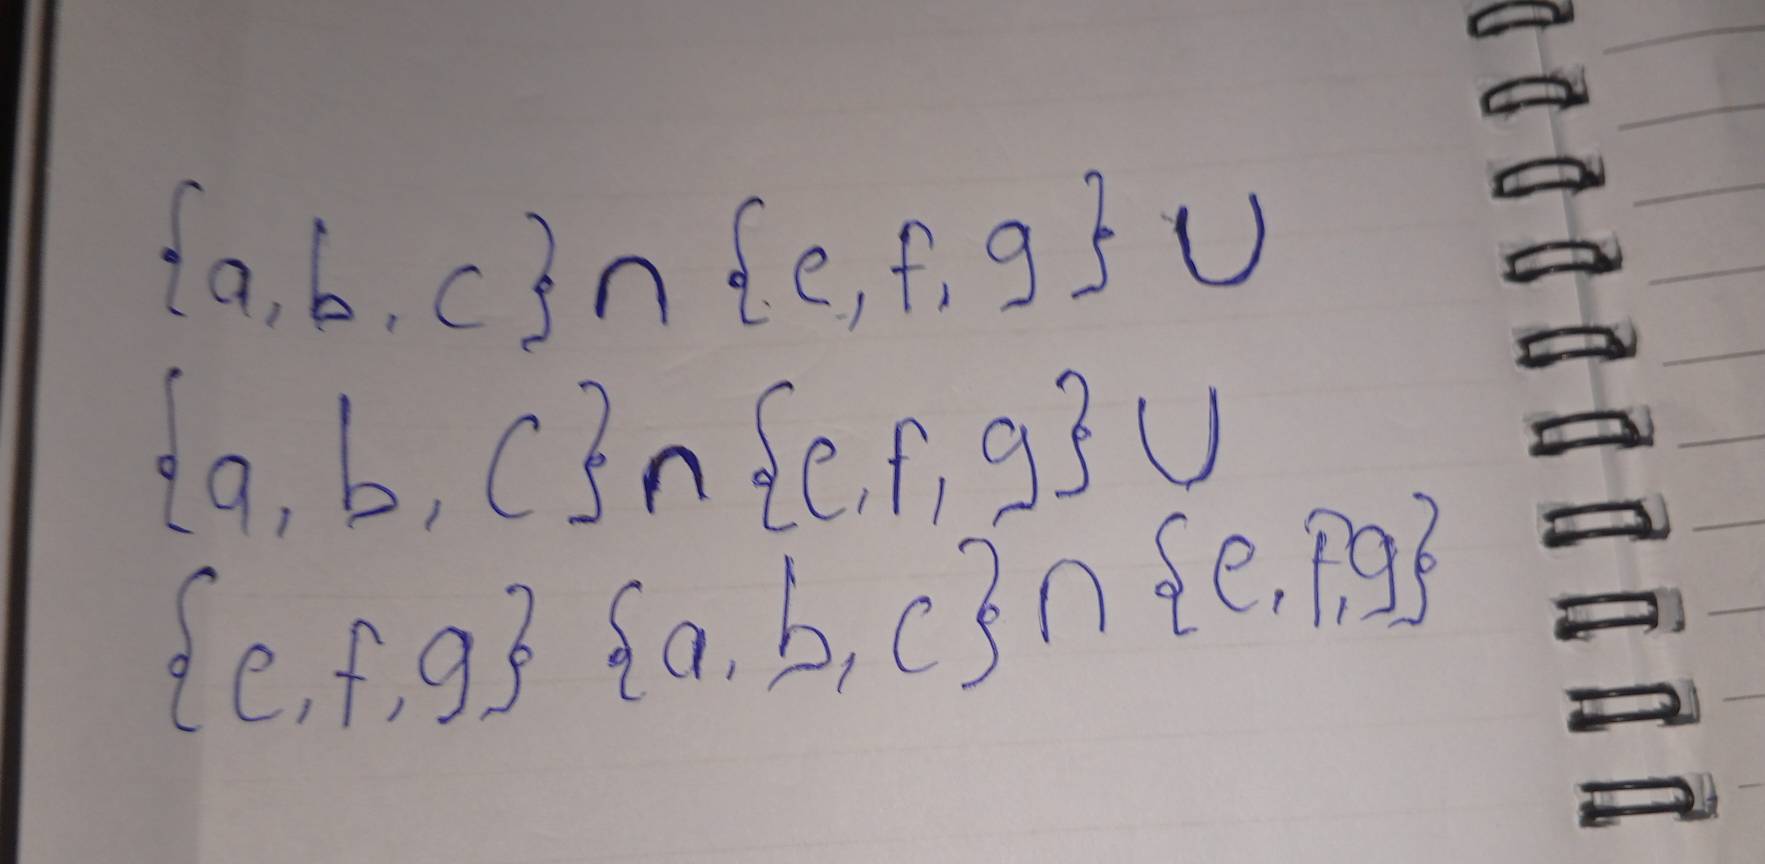 {a, b, c} ∩ {e, f, g} ∪
{a, b, c} ∩ {e, f, g} ∪
{e, f, g} {a, b, c} ∩ {e, f, g}